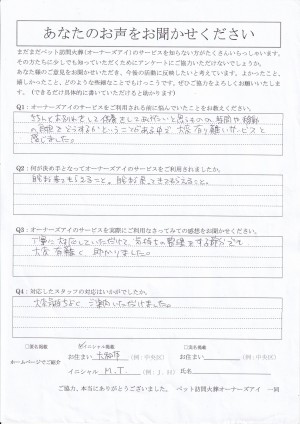 あなたのお声をお聞かせください
まだまだペット訪問火葬(オーナーズアイ)のサービスを知らない方がたくさんいらっしゃいます。
その方たちに少しでも知っていただくためにアンケートにご協力いただけないでしょうか。
あなた様のご意見をお聞かせいただき、今後の活動に反映したいと考えています。よかったこと、
嬉しかったこと、どのような些細なことでもけっこうです。ぜひご協力をよろしくお願いします。
(できるだけ具体的に書いていただけると助かります)
Q1:オーナーズアイのサービスをご利用される前に悩んでいたことをお聞かせください。
きちんとお別れをして供養をしてあげたいと思うものの、時間や移動
の問題をどうするかということがある中で大変有り難いサービスと
感じました。
Q2:何が決め手となってオーナーズアイのサービスをご利用されましたか。
Q3:オーナーズアイのサービスを実際にご利用なさってみての感想をお聞かせください。
丁寧に対応していただけて、気持ちの整理をする
大変有難く助かりました。
Q4:対応したスタッフの対応はいかがでしたか。
大変気持ちよくご案内いただけました。
ホームページでご紹介
イニシャル掲載
お住まい
(例:中央区)
イニシャル M.T. (例:J.H)
お住まい (例:中央区)
氏名
ご協力、本当にありがとうございました。 ペット訪問火葬オーナーズアイ 一同